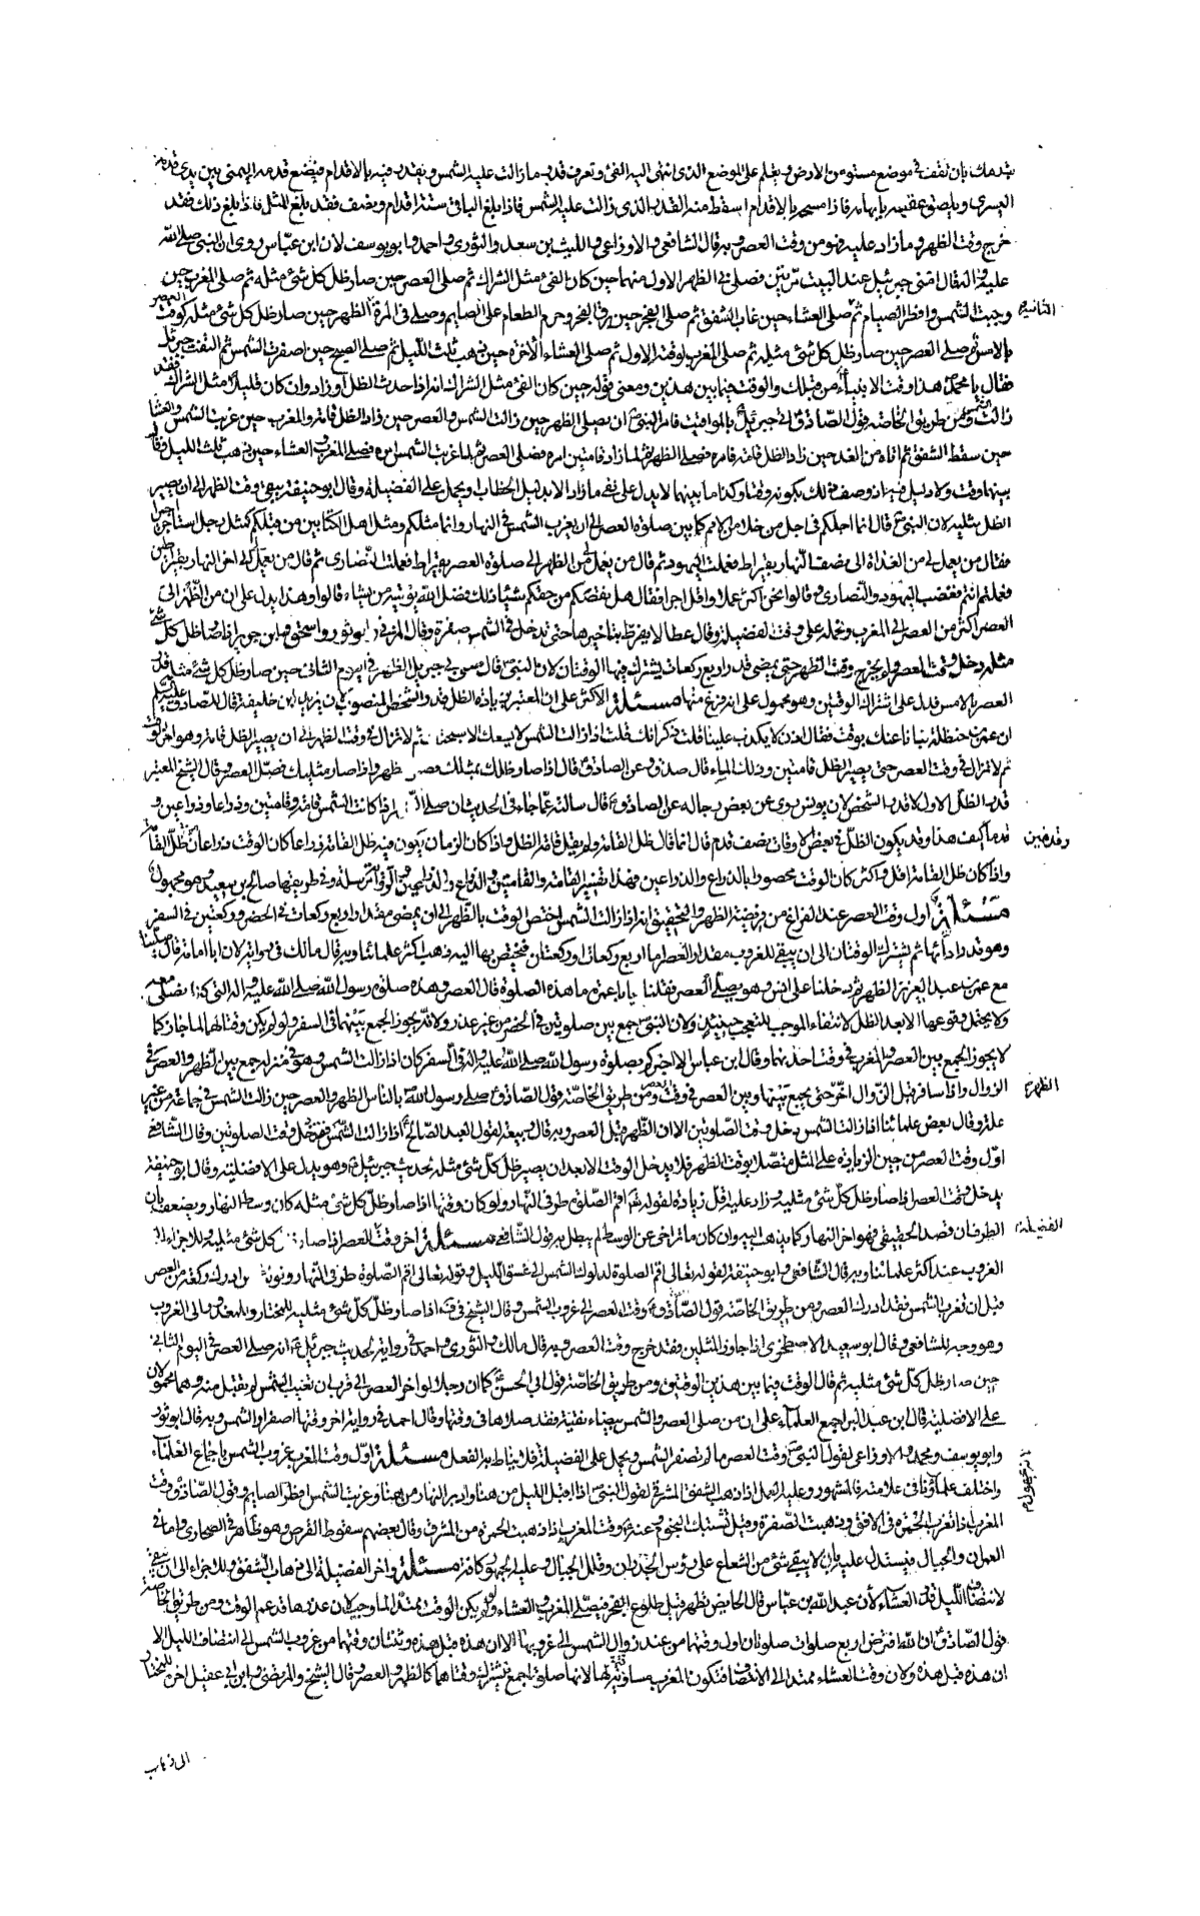 بقدمك بان تقف في موضع مستو من الارض وتعلم على الموضع الذى انتهى اليه الفئ وتعرف قدر ما زالت عليه الشمس ويقدر فيه بالاقدام فيضع قدمه اليمنى بين يدى قدمه
اليسرى ويلصق عقبه بابهامه فاذا مسحه بالاقدام اسقط منه القدر الذى زالت عليه الشمس فاذا بلغ الباقى ستة اقدام ونصف فقد بلغ المثل فاذا بلغ ذلك فقد
خرج وقت الظهر وما زاد عليه فهو من وقت العصر وبه قال الشافعي والاوزاعي والليث بن سعد والثوري واحمد وابو يوسف لان ابن عباس روى ان النبي صلى الله
عليه واله قال امنى جبرئيل عند البيت مرتين فصلى بي الظهر الاولى منهما حين كان الفئ مثل الشراك ثم صلى العصر حين صار ظل كل شئ مثله ثم صلى المغرب حين
وجبت الشمس وافطر الصيام ثم صلى العشاء حين غاب الشفق ثم صلى الفجر حين برق الفجر وحرم الطعام على الصايم وصلى في المرة الثانية الظهر حين صار ظل كل شئ مثله كوقت العصر
بالامس ثم صلى العصر حين صار ظل كل شئ مثليه ثم صلى المغرب لوقته الاول ثم صلى العشاء الآخرة حين ذهب ثلث الليل ثم صلى الصبح حين اصفرت الشمس ثم التفت جبرئيل
فقال يا محمد هذا وقت الانبياء من قبلك والوقت فيما بين هذين ومعنى قوله حين كان الفئ مثل الشراك انه اذا حدث الظل او زاد وان كان قليلا مثل الشراك فقد
زالت الشمس ومن طريق الخاصة قول الصادق اتى جبرئيل بالمواقيت فامر النبي ان يصلى الظهر حين زالت الشمس والعصر حين زاد الظل قامة والمغرب حين غربت الشمس والعشا
حين سقط الشفق ثم اتاه من الغد حين زاد الظل قامة فامره فصلى الظهر ثم لما زاد قامتين امره فصلى العصر ثم لما غربت الشمس امره فصلى المغرب والعشاء حين ذهب ثلث الليل وقال
بينهما وقت ولا دليل فيه
الظل مثليه لان النبي قال انما اجلكم في اجل من خلا من الامم كما بين صلوة العصر الى ان يغرب الشمس في النهار وانما مثلكم ومثل اهل الكتابين من قبلكم كمثل رجل استاجر اجراء
فقال من يعمل لى من الغداة الى نصف النهار بقيراط فعملت اليهود ثم قال من يعمل لى من الظهر الى صلوة العصر بقيراط فعملت النصارى ثم قال من يعمل لى الى اخر النهار بقيراطين
فعملتم انتم فغضب اليهود والنصارى وقالوا نحن اكثر عملا واقل اجرا فقال هل نقصتكم من حقكم شيئا ذلك فضل الله يؤتيه من يشاء قالوا وهذا يدل على ان من الظهر الى
العصر اكثر من العصر الى المغرب ونحمله على وقت الفضيلة وقال عطا لا يفرط بتاخيرها حتى تدخل في الشمس صفرة وقال المزني وابو ثور واسحق وابن جرير اذا صار ظل كل شئ
مثله دخل وقت العصر ولم يخرج وقت الظهر حتى يمضى قدر اربع ركعات يشترك فيها الوقتان لان النبي قال صلى بى جبريل الظهر في اليوم الثانى حين صار ظل كل شئ مثله قدر
العصر بالامس فدل على اشتراك الوقتين وهو محمول على انه فرغ منها مسئلة الاكثر على ان المعتبر بزيادة الظل قدر الشخص المنصوب لان يزيد بن خليفة قال للصادق عليه السلم
ان عمر بن حنظلة نبانا عنك بوقت فقال اذن لا يكذب علينا قلت ذكر انك قلت اذا زالت الشمس لم يمنعك الا سبحتك ثم لا تزال في وقت الظهر الى ان يصير الظل قامة وهو اخر الوقت
ثم لا تزال في وقت العصر حتى يصير الظل قامتين وذلك المساء قال صدق وعن الصادق قال اذا صار ظلك مثلك فصل الظهر واذا صار مثليك فصل العصر وقال الشيخ المعتبر
قدر الظل الاول لا قدر الشخص لان يونس روى عن بعض رجاله عن الصادق قال سالته عما جاء في الحديث ان صل الظهر اذا كانت الشمس قامة وقامتين وذراعا وذراعين و
قدما وقدمين كيف هذا وقد يكون الظل في بعض الاوقات نصف قدم قال انما قال ظل القامة ولم يقل قامة الظل
واذا كان ظل القامة اقل واكثر كان الوقت محصورا بالذراع والذراعين فهذا تفسير القامة والقامتين والذراع والذراعين والرواية مرسلة وفي طريقها صالح بن سعيد وهو مجهول
مسئلة اول وقت العصر عند الفراغ من فريضة الظهر والتحقيق انه اذا زالت الشمس اختص الوقت بالظهر الى ان يمضى مقدار اربع ركعات في الحضر وركعتين في السفر
وهو قدر ادائها ثم يشترك الوقتان الى ان يبقى للغروب مقدار العصر اما اربع ركعات او ركعتان فيختص بها اليه ذهب اكثر علمائنا وبه قال مالك في رواية لان ابا امامة قال صلينا
مع عمر بن عبد العزيز الظهر ثم دخلنا على انس وهو يصلى العصر فقلنا يا با عمرة ما هذه الصلوة قال العصر وهذه صلوة رسول الله صلى الله عليه واله التى كنا نصلى معه
ولا يحتمل وقوعها الا بعد الظل لانتفاء الموجب للتعجب حينئذ ولان النبي جمع بين صلوتين في الحضر من غير عذر ولانه يجوز الجمع بينهما في السفر ولو لم يكن وقتا لهما لما جاز كما
لا يجوز الجمع بين العصر والمغرب في وقت احدهما وقال ابن عباس الا اخبركم بصلوة رسول الله صلى الله عليه واله في السفر كان اذا زالت الشمس وهو في منزله جمع بين الظهر والعصر في
الزوال واذا سافر قبل الزوال اخر الظهر حتى يجمع بينها وبين العصر في وقت العصر ومن طريق الخاصة قول الصادق صلى رسول الله بالناس الظهر والعصر حين زالت الشمس في جماعة من غير
علة وقال بعض علمائنا اذا زالت الشمس دخل وقت الصلوتين الا ان الظهر قبل العصر وبه قال ربيعة لقول العبد الصالح اذا زالت الشمس فقد دخل وقت الصلوتين وقال الشافعي
اول وقت العصر من حين الزيادة على المثل متصلا بوقت الظهر فلا يدخل الوقت الا بعد ان يصير ظل كل شئ مثله لحديث جبرئيل وهو يدل على الافضلية وقال ابو حنيفة
يدخل وقت العصر اذا صار ظل كل شئ مثليه وزاد عليه اقل زيادة لقوله تعالى اقم الصلوة طرفى النهار ولو كان وقتها اذا صار ظل كل شئ مثله كان وسط النهار ويضعف بان
الطرف ان قصد الحقيقى فهو اخر النهار كما يذهب اليه وان كان ما تراخى عن الوسط لم يبطل به قول الشافعي مسئلة اخر وقت العصر للفضيلة اذا صار ظل كل شئ مثليه وللاجزاء الى
الغروب عند اكثر علمائنا وبه قال الشافعي وابو حنيفة لقوله تعالى اقم الصلوة لدلوك الشمس الى غسق الليل وقوله تعالى اقم الصلوة طرفى النهار وقوله من ادرك ركعة من العصر
قبل ان تغرب الشمس فقد ادرك العصر ومن طريق الخاصة قول الصادق وقت العصر الى غروب الشمس وقال الشيخ اذا صار ظل كل شئ مثليه للمختار وللمعذور الى الغروب
وهو وجه للشافعي وقال ابو سعيد الاصطخرى اذا جاوز المثلين فقد خرج وقت العصر وبه قال مالك والثوري واحمد في رواية لحديث جبرئيل انه صلى العصر في اليوم الثانى
حين صار ظل كل شئ مثليه ثم قال الوقت فيما بين هذين الوقتين ومن طريق الخاصة قول ابى الحسن كما ان رجلا لو اخر العصر الى قرب ان تغيب الشمس لم يقبل منه وهما محمولان
على الافضلية قال ابن عبد البر اجمع العلماء على ان من صلى العصر والشمس بيضاء نقية فقد صلاها في وقتها وقال احمد في رواية اخر وقتها اصفرار الشمس وبه قال ابو ثور
وابو يوسف ومحمد والاوزاعى لقول النبي وقت العصر ما لم تصفر الشمس ويحمل على الفضيلة مسئلة اول وقت المغرب غروب الشمس باجماع العلماء
واختلف علماؤنا في علامته فالمشهور وعليه العمل اذا ذهب الشفق المشرقى لقول النبي اذا اقبل الليل من هنا وادبر النهار من هنا وغربت الشمس افطر الصايم وقول الصادق وقت
المغرب اذا ذهبت الحمرة من المشرق وقال بعضهم سقوط القرص وهو ظاهر في الصحارى واما في
العمران والجبال فيستدل عليه بان لا يبقى شئ من الشعاع على رؤس الجدران وقلل الجبال وعليه الجمهور كافة مسئلة واخر الفضيلة الى ذهاب الشفق وللاجزاء الى ان يبقى
لانتصاف الليل قدر العشاء لان عبد الله بن عباس قال الحايض تطهر قبل طلوع الفجر فتصلى المغرب والعشاء ولو لم يكن الوقت ممتدا لما وجب لان عذرها قد عم الوقت ومن طريق الخاصة
قول الصادق ان الله فرض اربع صلوات صلوتان اول وقتهما من عند زوال الشمس الى غروبها الا ان هذه قبل هذه وثنتان وقتهما من غروب الشمس الى انتصاف الليل الا
ان هذه قبل هذه ولان وقت العشاء ممتد الى الانتصاف فتكون المغرب مساوية لها لانها صلوة جمع فيشترك وقتاهما كالظهر والعصر وقال الشيخ والمرتضى وابن ابى عقيل اخره للمختار
الى ذهاب